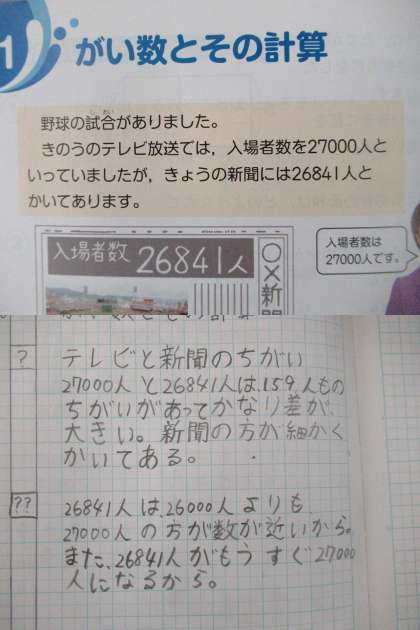 1 がい数とその計算
野球の試合がありました。
きのうのテレビ放送では，入場者数を27000人と
いっていましたが，きょうの新聞には26841人と
かいてあります。
入場者数 26841人
○×新聞
入場者数は
27000人です。
? テレビと新聞のちがい
27000人と26841人は、159人もの
ちがいがあってかなり差が、
大きい。新聞の方が細かく
かいてある。
?? 26841人は、26000人よりも
27000人の方が数が近いから。
また、26841人がもうすぐ27000
人になるから。